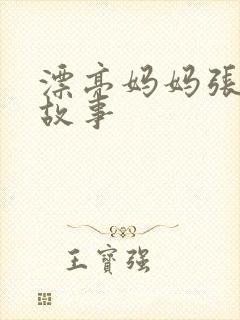 漂亮妈妈張
故事
王寶强